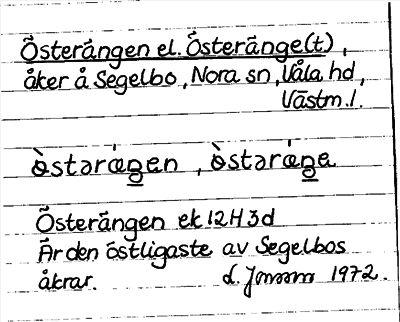 Österängen el. Österänge(t),
åker å Segelbo, Nora sn, Våla hd,
Västm. l.
ò̀stəráŋən, ò̀stəráŋa
Österängen ek 12H3d
Är den östligaste av Segelbos
åkrar. d. 1972.